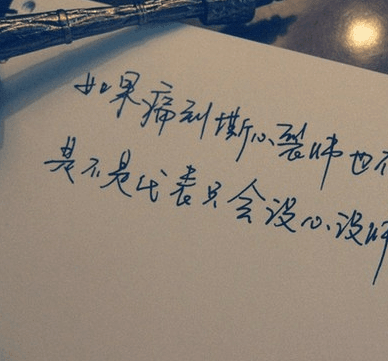 如果痛到撕心裂肺也不
是不是代表只会没心没肺